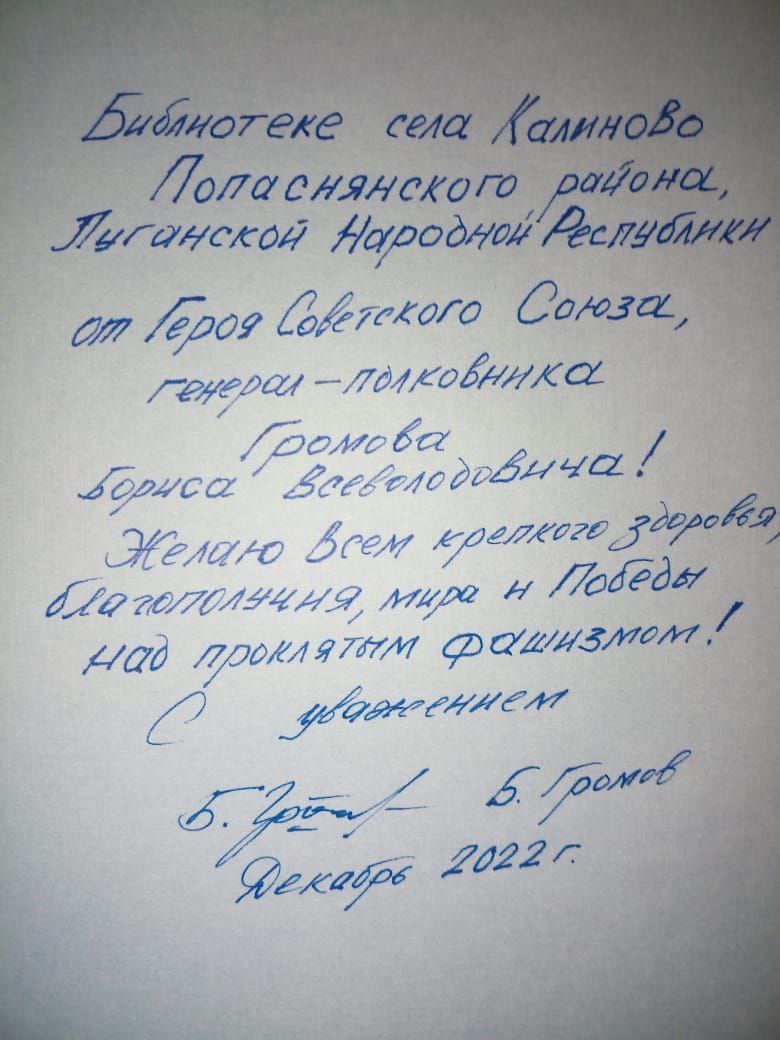 Библиотеке села Калиново
Попаснянского района,
Луганской Народной Республики
от Героя Советского Союза,
генерал-полковника
Громова
Бориса Всеволодовича!
Желаю Всем крепкого здоровья,
благополучия, мира и Победы
над проклятым фашизмом!
С уважением
Б. Громов
Декабрь 2022 г.